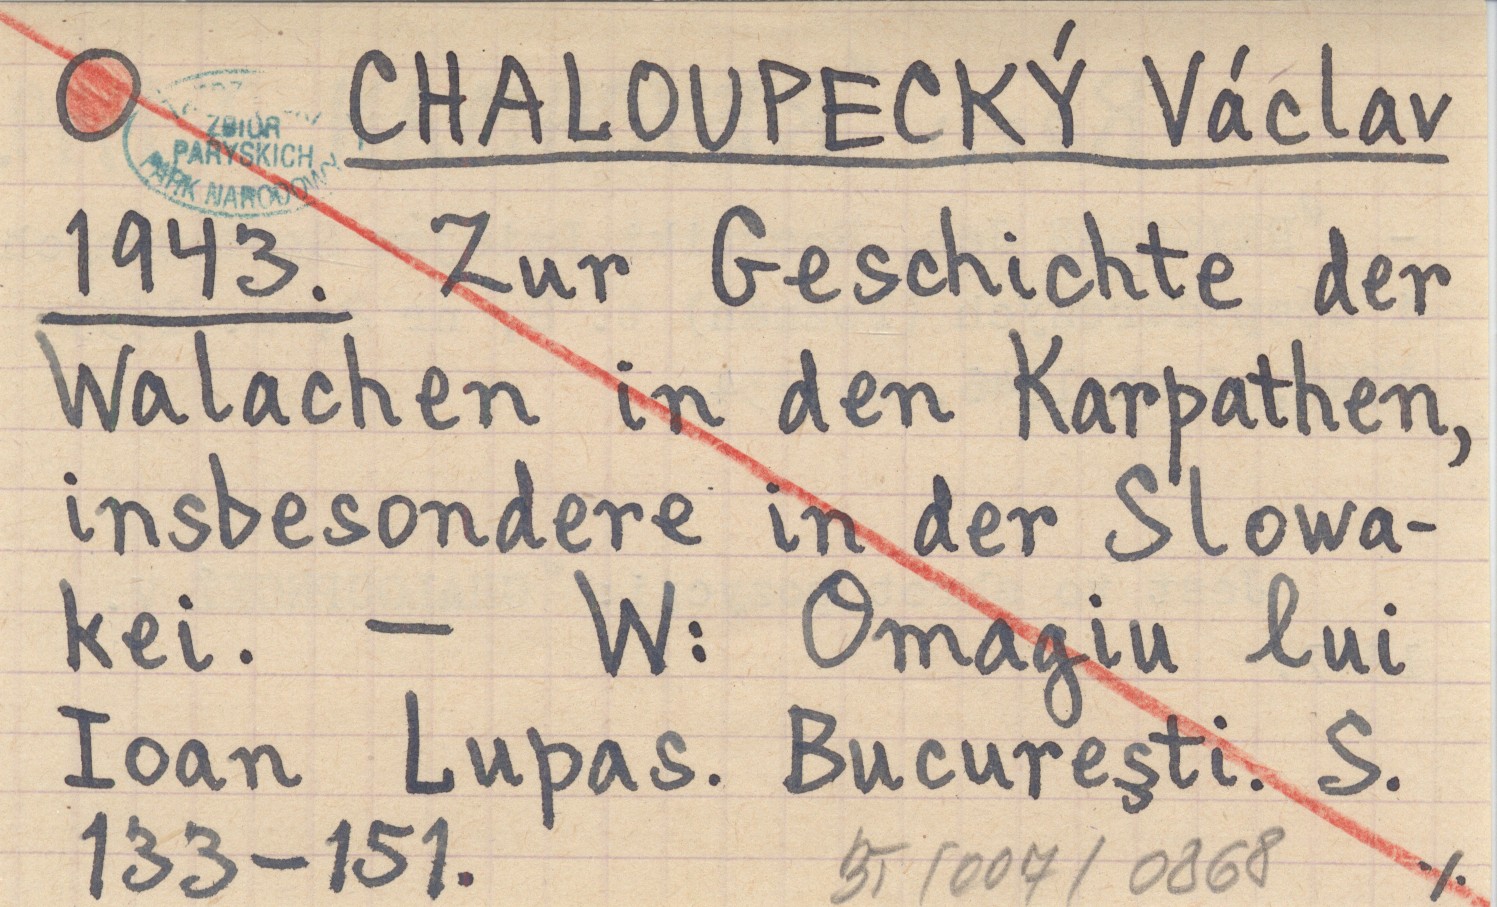 CHALOUPECKÝ Václav
ZBIÓR
PARYSKICH
PARK NARODOWY
1943. Zur Geschichte der
Walachen in den Karpathen,
insbesondere in der Slowa-
kei. — W: Omagiu lui
Ioan Lupas. Bucureşti. S.
133-151.
/007/ 0868
./.